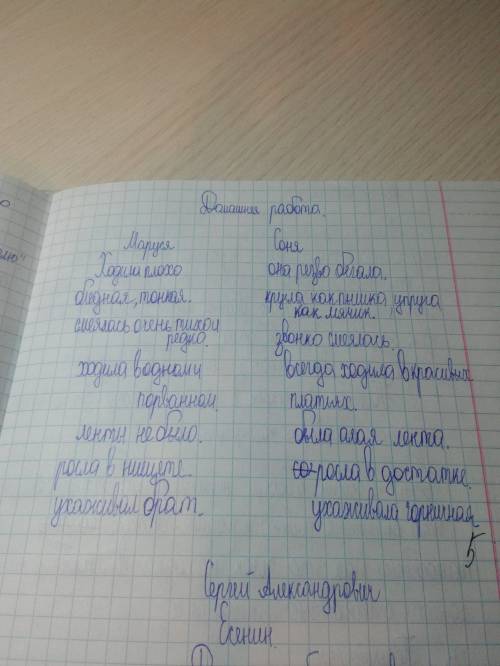 Домашняя работа.
Маруся Соня
Ходила плохо она резво бегала.
бледная, тонкая. кругла как пышка, упруга
как мячик.
смеялась очень тихо и
редко. звонко смеялась.
ходила в одном и всегда ходила в красивых
порванном. платьях.
ленты не было. была алая лента.
росла в нищете. росла в достатке.
ухаживал брат. ухаживала горничная
5
Сергей Александрович
Есенин.